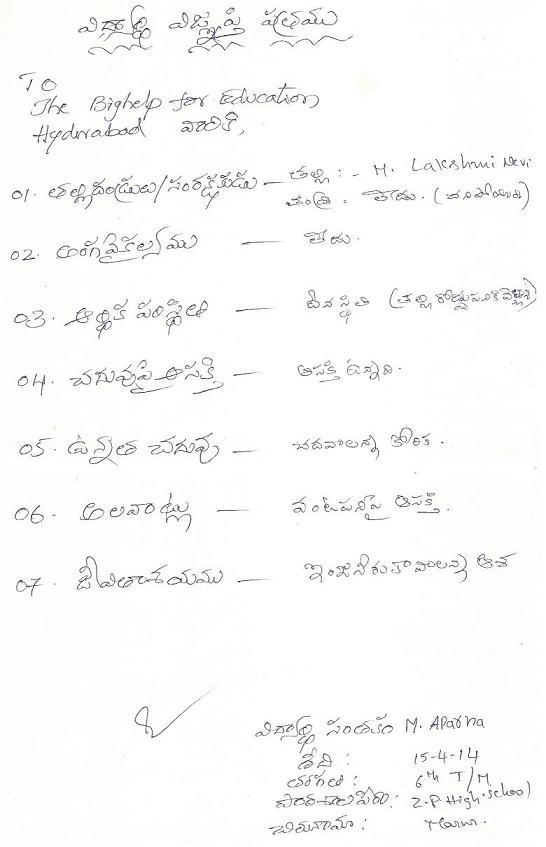 విద్యార్థి విజ్ఞప్తి పత్రము
TO
The Bighelp for Education
Hyderabad వారికి,
01. తల్లిదండ్రులు/సంరక్షకుడు — తల్లి :- M. Lakshmi Devi
తండ్రి . లేడు. (చనిపోయిండు)
02. అంగవైకల్యము — లేదు.
03. ఆర్థిక పరిస్థితి — దీనస్థితి (తల్లి
04. చదువుపై ఆసక్తి — ఆసక్తి ఉన్నది.
05. ఉన్నత చదువు — చదవాలన్న కోరిక.
06. అలవాట్లు — వంటపనిపై ఆసక్తి.
07. జీవితాశయము — ఇంజనీరు కావాలన్న ఆశ
విద్యార్థి సంతకం M. Aparna
తేది : 15-4-14
తరగతి : 6th T/M
పాఠశాల పేరు : Z.P High School
చిరునామా :